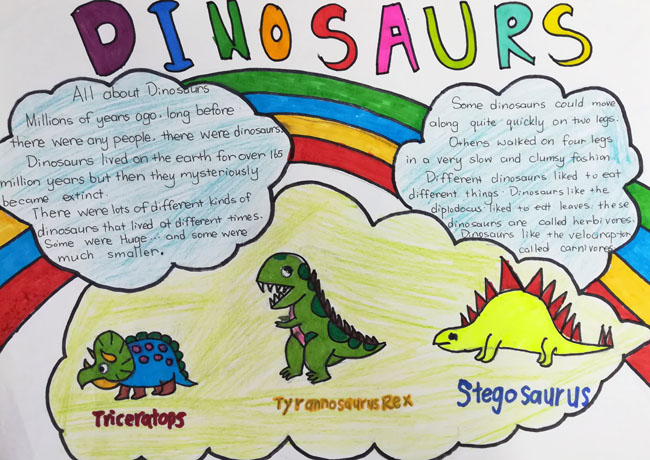 DINOSAURS
All about Dinosaurs
Millions of years ago, long before
there were any people, there were dinosaurs.
Dinosaurs lived on the earth for over 165
million years but then they mysteriously
became extinct.
There were lots of different kinds of
dinosaurs that lived at different times.
Some were Huge... and some were
much smaller.
Some dinosaurs could move
along quite quickly on two legs.
Others walked on four legs
in a very slow and clumsy fashion.
Different dinosaurs liked to eat
different things. Dinosaurs like the
diplodocus liked to eat leaves. these
dinosaurs are called herbivores.
Dinosaurs like the velociraptor
called carnivores
Triceratops
Tyrannosaurus Rex
Stegosaurus